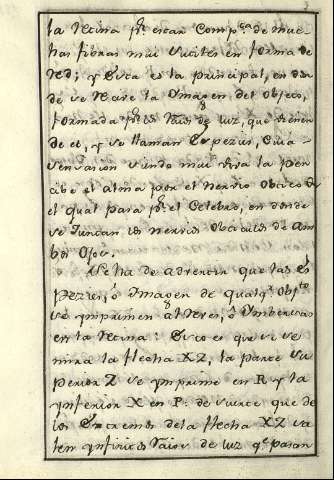 la Retina pr. estar Compta. de mu-
has fibras mui sutiles en forma de
red; y Esta es la principal, en don
de se hace la Ymagen del Objeto,
formada pr. los Raios de luz, que vienen
de el, y se llaman Espezies, Cuia
sensacion siendo mui viva la perci
abe el alma por el nervio Obtico
el qual pasa pr. el Celebro, en donde
se Juntan los nervios Obticos de Am
bos Ojos.
Se ha de advertir que las Es
pezies, ó Ymagen de qualqr. Objto.
se ymprimen al Reves, ó Ymbersas
en la Retina: Esto es que si se
mira la flecha XZ, la parte Su
perior Z se ymprime en R y la
ynferior X en P. de suerte que de
los Extremos de la flecha XZ sa
len ynfinitos Raios de luz qe. pasan